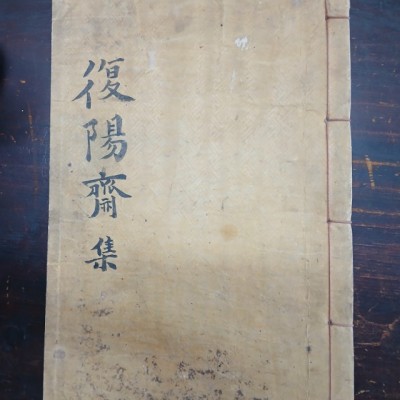 復陽齋集